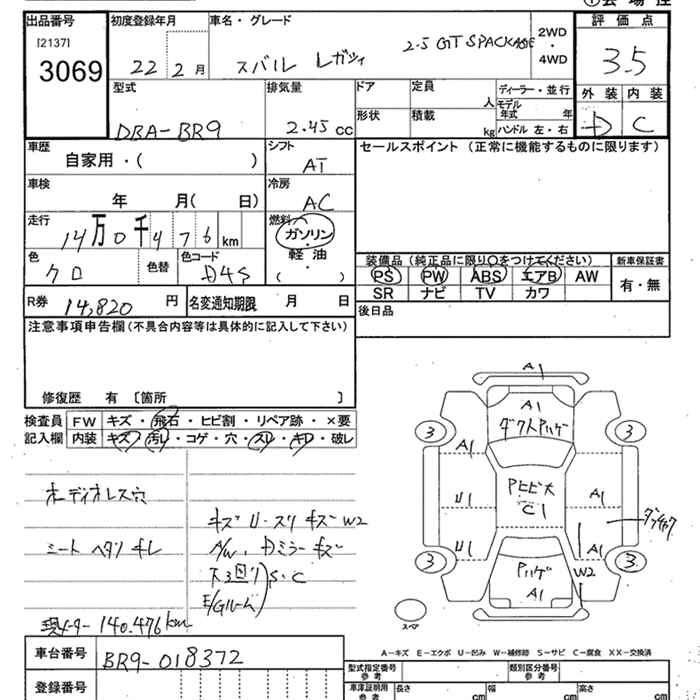 出品番号
[2137]
3069
初度登録年月
22年 2月
車名・グレード
スバル レガシィ 2.5 GT SPACKAGE
2WD
・
4WD
評価点
3.5
外装 内装
D C
型式
DBA-BR9
排気量
2.45 cc
ドア
形状
定員 人
積載 kg
ディーラー・並行
モデル年式 年
ハンドル 左・右
車歴
自家用・( )
シフト
AT
車検
年 月( 日)
冷房
AC
走行
14万0千476 km
燃料
ガソリン
軽油
( )
色
クロ
色替
色コード
D4S
R券 14,820 円
名変通知期限 月 日
セールスポイント (正常に機能するものに限ります)
装備品 (純正品に限り○をつけてください)
新車保証書
PS PW ABS エアB AW
SR ナビ TV カワ
有・無
後日品
注意事項申告欄 (不具合内容等は具体的に記入して下さい)
修復歴 有 〔箇所 〕
検査員 FW キズ・飛石・ヒビ割・リペア跡・×要
記入欄 内装 キズ・汚レ・コゲ・穴・スレ・キレ・破レ
オーディオレス穴
シート ヘタリ キレ
キズ U・スリ キズ W2
A/W、Dミラーキズ
下廻り
E/Gルーム
S・C
現メーター 140.476km
A1
A1
ダクトハゲ
3
3
A1
U1
U1
Aヒビ大
C1
A1
ダンキャク
A1
W2
Pハゲ
A1
3
3
スペア
A-キズ E-エクボ U-凹み W-補修跡 S-サビ C-腐食 XX-交換済
車台番号
BR9-018372
登録番号
型式指定番号
参考
類別区分番号
参考
車庫証明用
参考
長さ cm
幅 cm
高さ cm